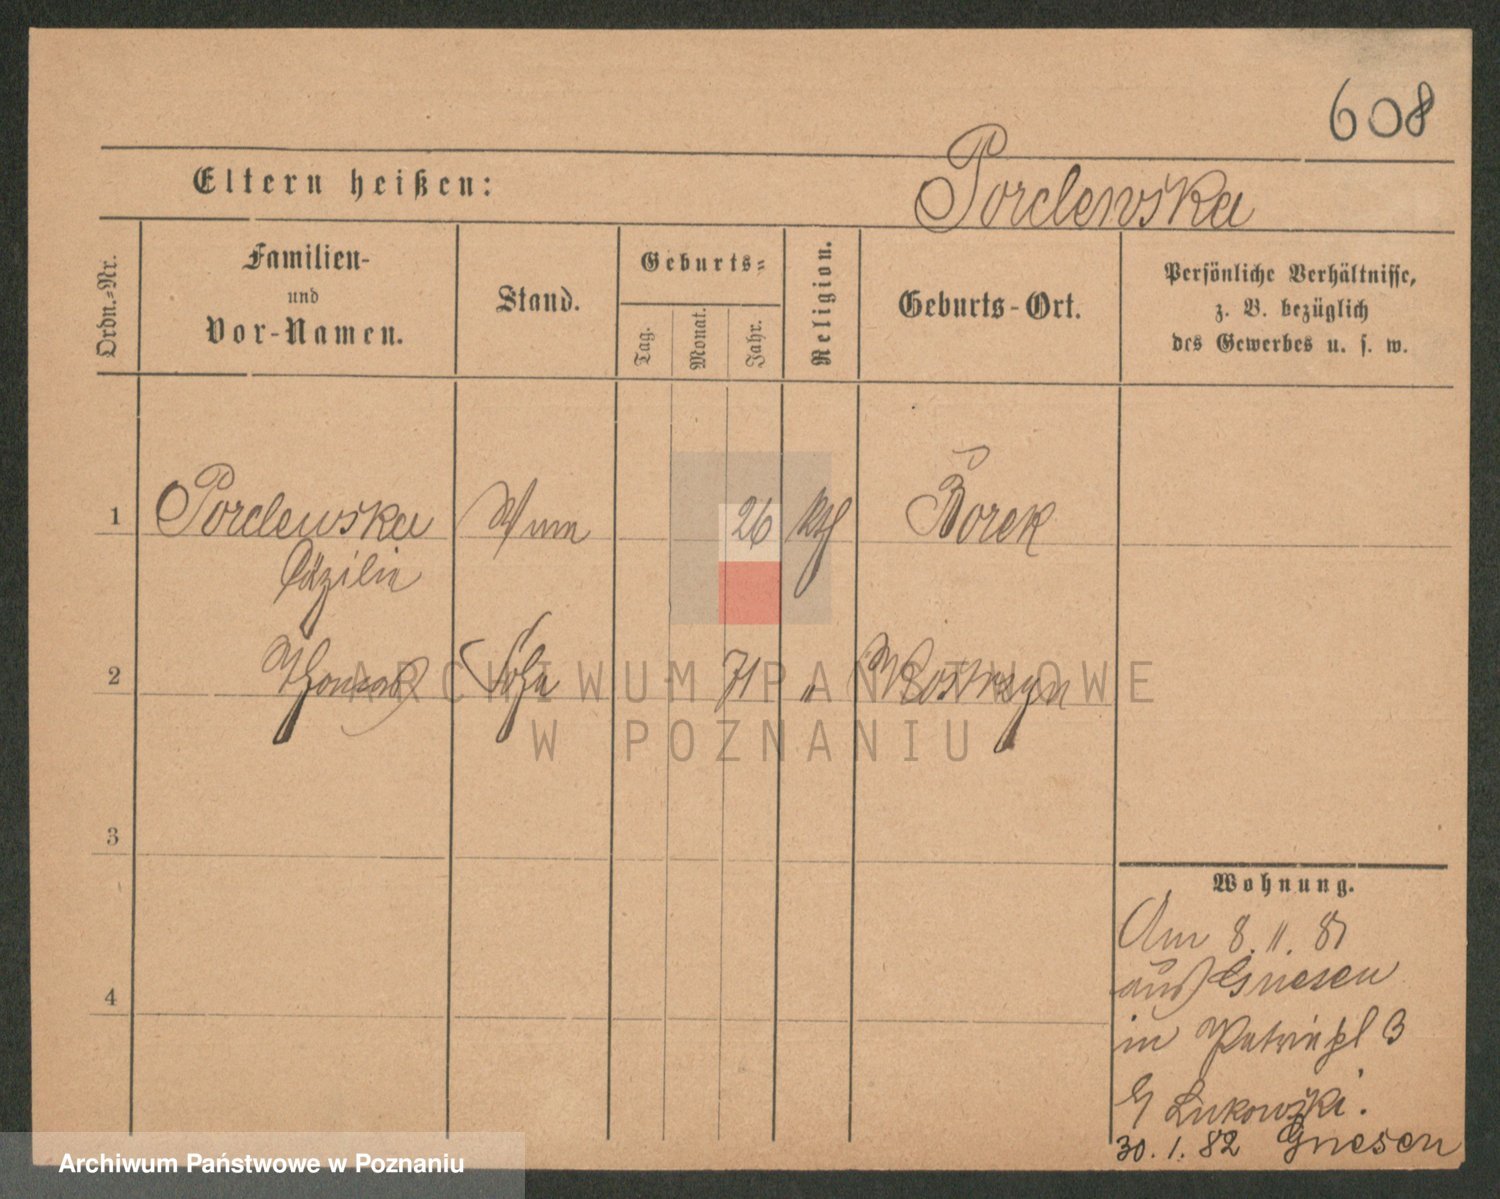 608
Eltern heißen:
Porclewska
Ordn.-Nr.
Familien-
und
Vor-Namen.
Stand.
Geburts-
Tag.
Monat.
Jahr.
Religion.
Geburts-Ort.
Persönliche Verhältnisse,
z. B. bezüglich
des Gewerbes u. s. w.
1 Porclewska 26 Kth Borek
Cäzilie
2 Sohn 71 "
3
4
Wohnung.
Am 8. 11. 81
aus Gnesen
in Petripl 3
Lukowski.
30. 1. 82 Gnesen
ARCHIWUM PAŃSTWOWE
W POZNANIU
Archiwum Państwowe w Poznaniu